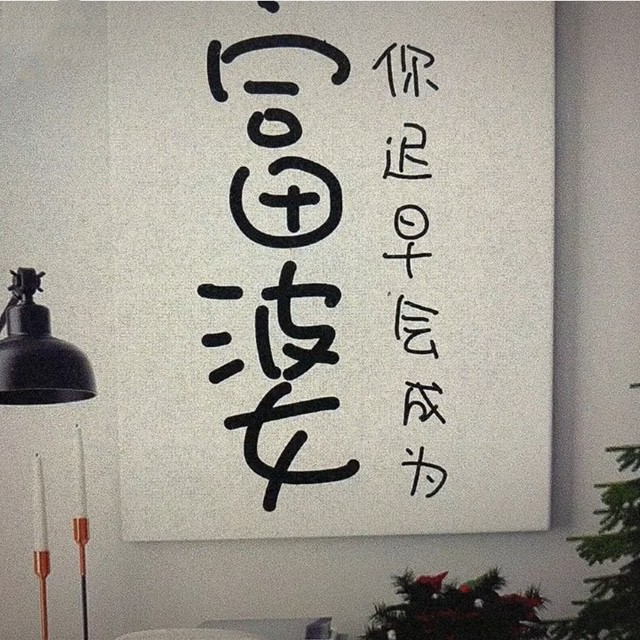 你迟早会成为
富婆